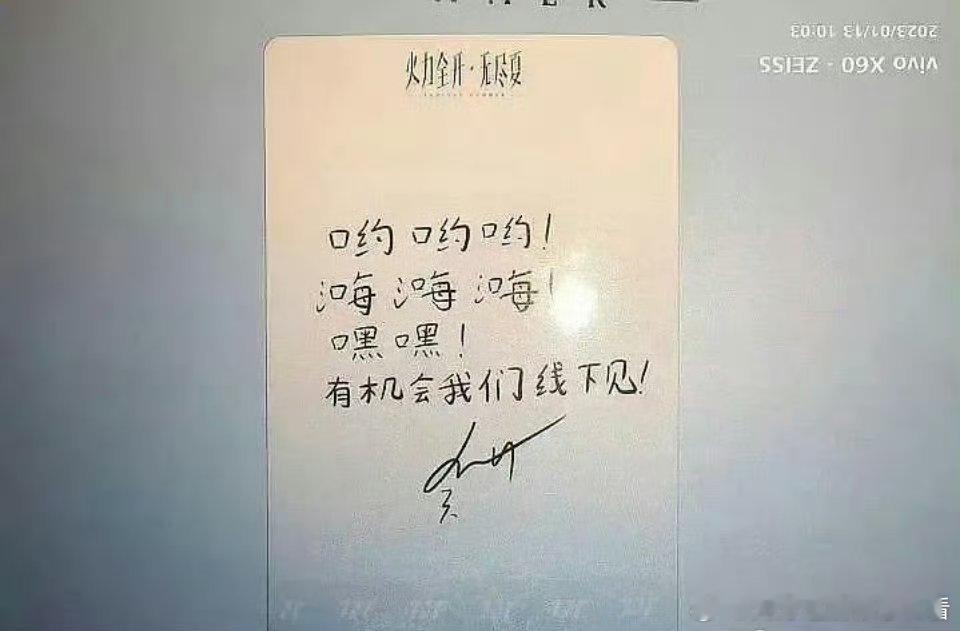 2023/01/13 10:03
vivo X60 · ZEISS
火力全开·无尽夏
哟哟哟!
嗨嗨嗨!
嘿嘿!
有机会我们线下见!